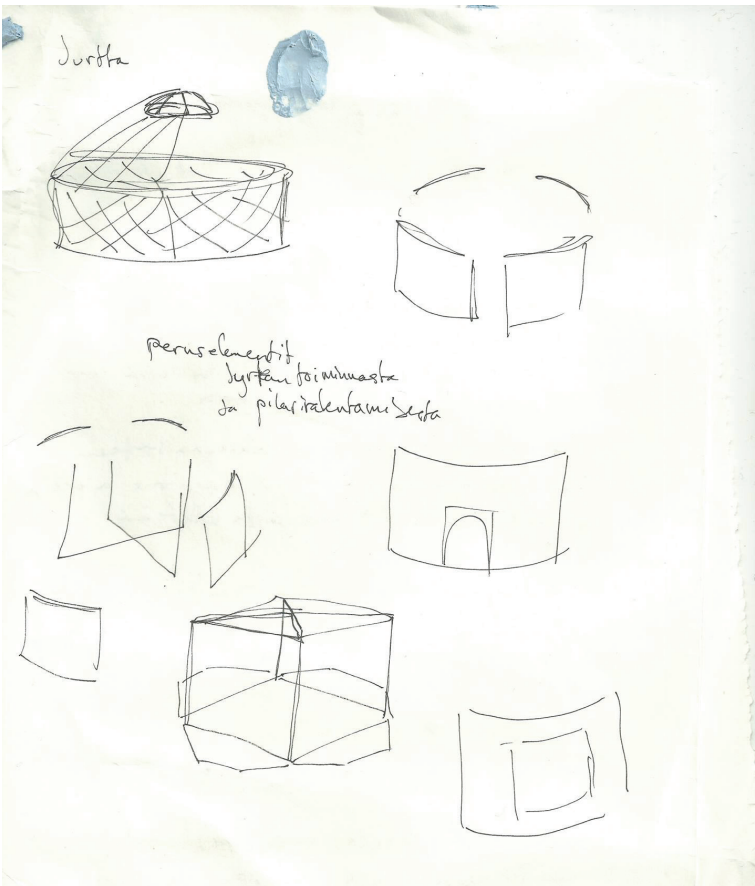 Jurtta
peruselementit
Jyrtan toiminnasta
ja pilarirakentamisesta